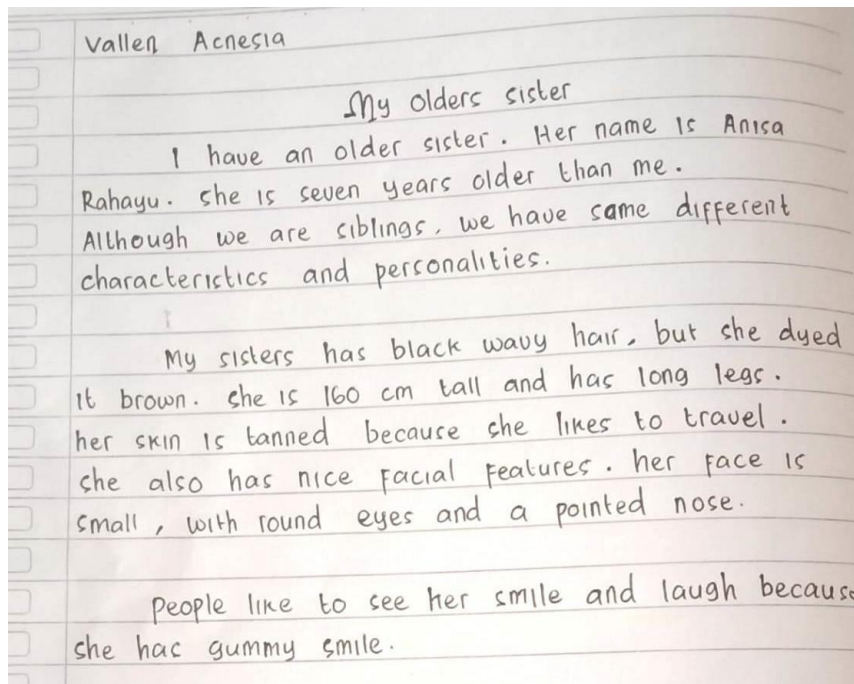 Vallen Acnesia
My Olders sister
I have an older sister. Her name is Anisa
Rahayu. She is seven years older than me.
Although we are siblings, we have same different
characteristics and personalities.
My sisters has black wavy hair, but she dyed
it brown. She is 160 cm tall and has long legs.
her skin is tanned because she likes to travel.
she also has nice facial features. her face is
small, with round eyes and a pointed nose.
people like to see her smile and laugh because
she has gummy smile.